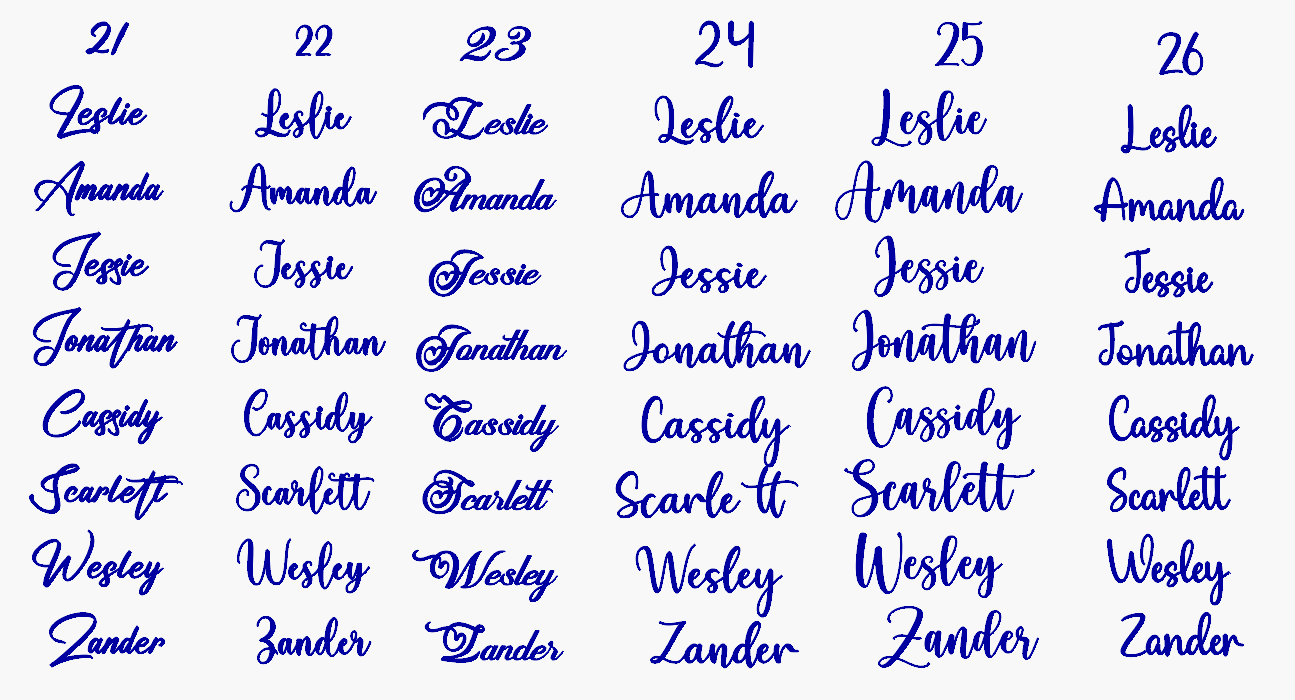 21 22 23 24 25 26
Leslie Leslie Leslie Leslie Leslie Leslie
Amanda Amanda Amanda Amanda Amanda Amanda
Jessie Jessie Jessie Jessie Jessie Jessie
Jonathan Jonathan Jonathan Jonathan Jonathan Jonathan
Cassidy Cassidy Cassidy Cassidy Cassidy Cassidy
Scarlett Scarlett Scarlett Scarle tt Scarlett Scarlett
Wesley Wesley Wesley Wesley Wesley Wesley
Zander Zander Zander Zander Zander Zander